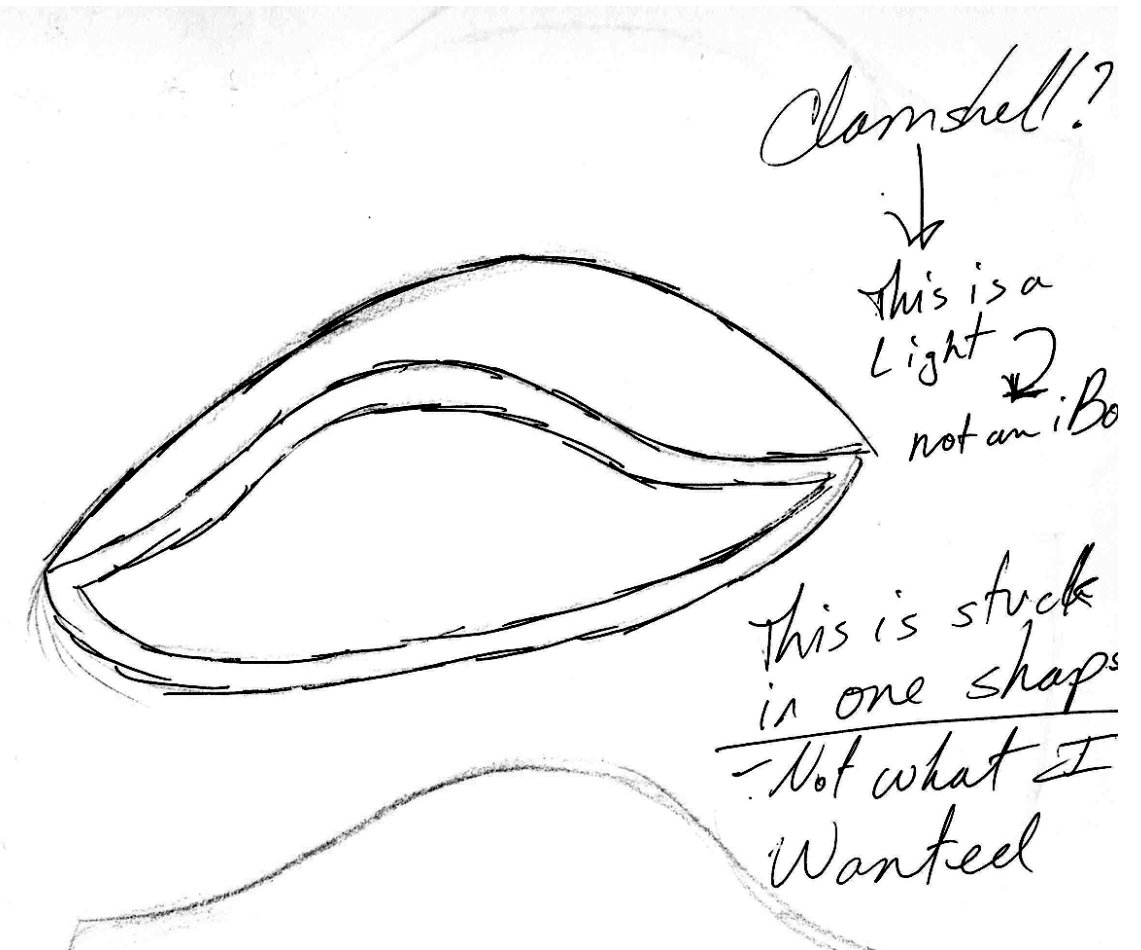 Clamshell?
This is a
Light
not an iBo
This is stuck
in one shape
- Not what I
Wanted